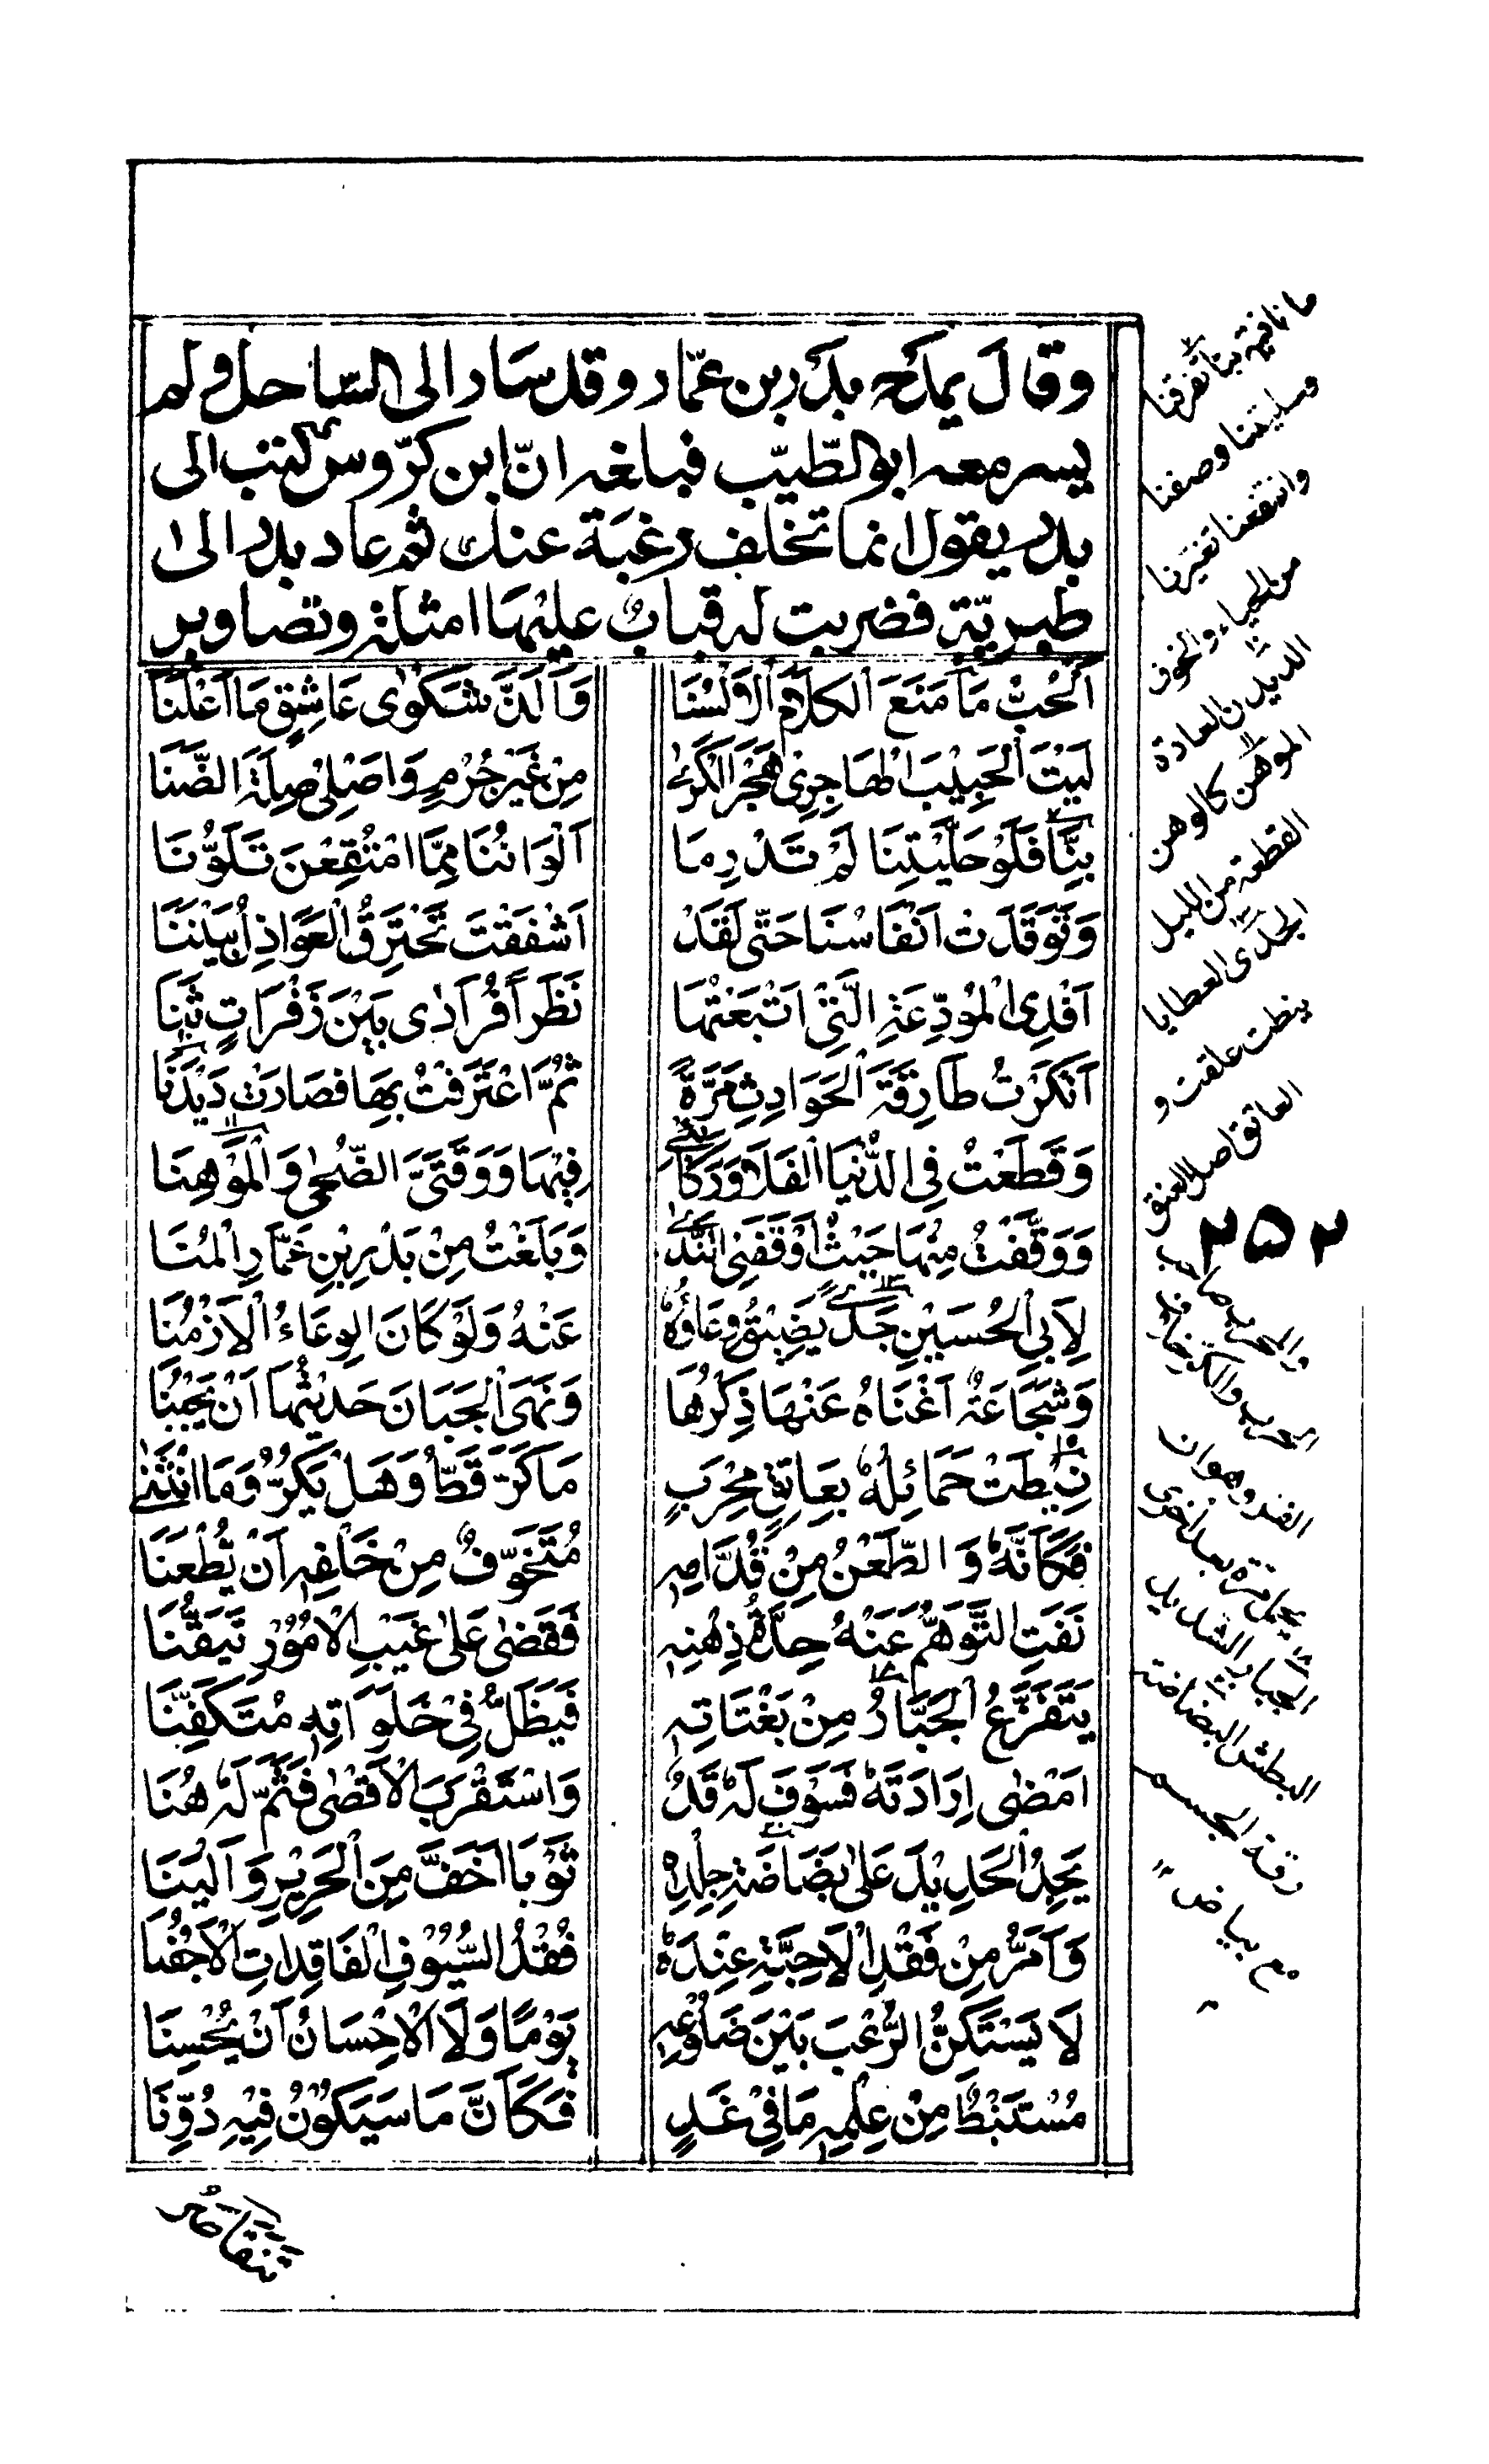 وقال يمدحه بدر بن عمّار وقد سار الى الساحل ولم
يسر معه ابو الطّيّب فبلغه انّ ابن كرّوس كتب الى
بدر يقول انما تخلف رغبة عنك ثم عاد بدر الى
طبريّة فضربت له قبابٌ عليها امثلة وتصاوير
اَلْحُبُّ مَا مَنَعَ الْكَلَامَ الْاَلْسُنَا وَاَلَذُّ شَكْوٰى عَاشِقٍ مَا اَعْلَنَا
لَيْتَ الْحَبِيْبَ الْهَاجِرِىْ هَجْرَ الْكَرٰى مِنْ غَيْرِ جُرْمٍ وَاصِلِىْ صِلَةَ الضَّنَا
بِنَّا فَلَوْ حَلَّيْتَنَا لَمْ تَدْرِ مَا اَلْوَانُنَا مِمَّا امْتُقِعْنَ تَلَوُّنَا
وَتَوَقَّدَتْ اَنْفَاسُنَا حَتّٰى لَقَدْ اَشْفَقْتُ تَحْتَرِقُ الْعَوَاذِلُ بَيْنَنَا
اَفْدِى الْمُوَدِّعَةِ الَّتِىْ اَتْبَعْتُهَا نَظَرًا فُرَادٰى بَيْنَ زَفْرَاتٍ ثُنَا
اَنْكَرْتُ طَارِقَةَ الْحَوَادِثِ مَرَّةً ثُمَّ اعْتَرَفْتُ بِهَا فَصَارَتْ دَيْدَنَا
وَقَطَعْتُ فِى الدُّنْيَا الْفَلَا وَرَكَائِبِىْ فِيْهَا وَوَقْتَىَّ الضُّحٰى وَالْمَوْهِنَا
وَوَقَفْتُ مِنْهَا حَيْثُ اَوْقَفَنِى النَّدٰى وَبَلَغْتُ مِنْ بَدْرِ بْنِ عَمَّارِ الْمُنَا
لِاَبِى الْحُسَيْنِ جَدًى يَضِيْقُ وِعَاؤُهٗ عَنْهُ وَلَوْ كَانَ الوِعَاءُ الْاَزْمُنَا
وَشَجَاعَةٌ اَغْنَاهُ عَنْهَا ذِكْرُهَا وَنَهَى الْجَبَانَ حَدِيْثُهَا اَنْ يَجْبُنَا
نِيْطَتْ حَمَائِلُهٗ بِعَاتِقِ مِحْرَبٍ مَا كَرَّ قَطُّ وَهَلْ يَكُرُّ وَمَا انْثَنٰى
فَكَاَنَّهٗ وَالطَّعْنُ مِنْ قُدَّامِهٖ مُتَخَوِّفٌ مِنْ خَلْفِهٖ اَنْ يُّطْعَنَا
نَفَتِ التَّوَهُّمَ عَنْهُ حِدَّةُ ذِهْنِهٖ فَقَضٰى عَلٰى غَيْبِ الْاُمُوْرِ تَيَقُّنَا
يَتَفَزَّعُ الْجَبَّارُ مِنْ بَغْتَاتِهٖ فَيَظَلُّ فِىْ خَلَوَاتِهٖ مُتَكَفِّنَا
اَمْضٰى اِرَادَتَهٗ فَسَوْفَ لَهٗ قَدٌ وَاسْتَقْرَبَ الْاَقْصٰى فَثَمَّ لَهٗ هُنَا
يَجِدُ الْحَدِيْدَ عَلٰى بَضَاضَةِ جِلْدِهٖ ثَوْبًا اَخَفَّ مِنَ الْحَرِيْرِ وَاَلْيَنَا
وَاَمَرُّ مِنْ فَقْدِ الْاَحِبَّةِ عِنْدَهٗ فَقْدُ السُّيُوْفِ الْفَاقِدَاتِ الْاَجْفُنَا
لَا يَسْتَكِنُّ الرُّعْبَ بَيْنَ ضُلُوْعِهٖ يَوْمًا وَلَا الْاِحْسَانُ اَنْ يُحْسِنَا
مُسْتَنْبِطٌ مِنْ عِلْمِهٖ مَا فِىْ غَدٍ فَكَاَنَّ مَا سَيَكُوْنُ فِيْهِ دُوِّنَا
ما نافية بنا تفرقنا
وحليتنا وصفتنا
وامتقعنا تغيرنا
من الحياء والخوف
الديدن العادة
الموهن كالوهن
القطعة من الليل
الجدى العطايا
نيطت علقت و
العاتق اصل العنق
٢٥٢
والمحرب صاحب
الحرب والكر خلاف
الفر وهو ان
يحمل مرة بعد اخرى
الجبار الشديد
البطش البضاضة
رقة الجسم
مع بياض